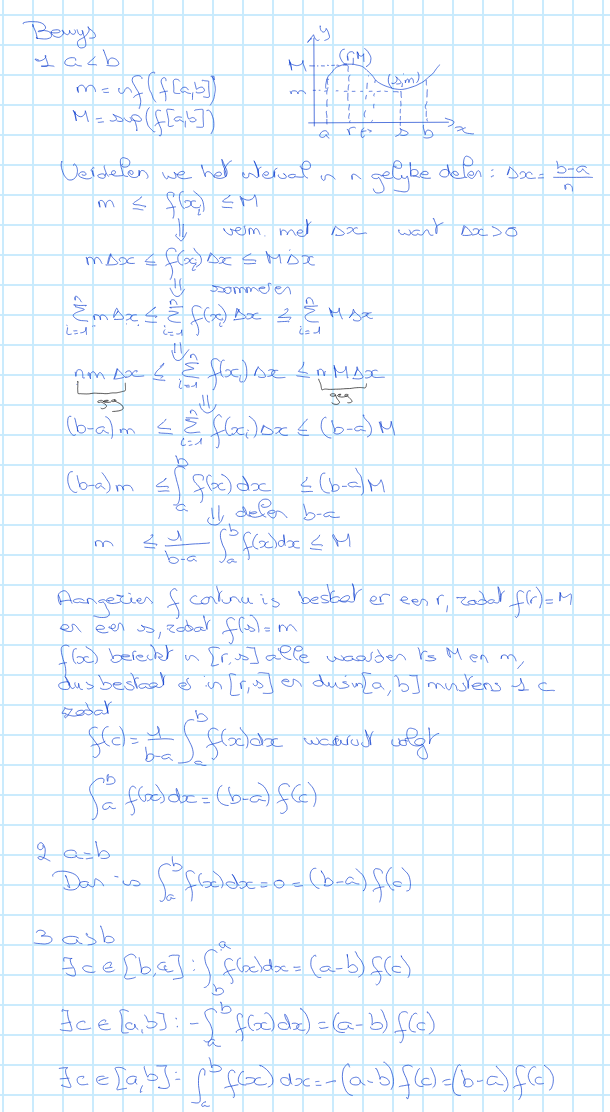 Bewijs
1 a<b
m = inf(f[a,b])
M = sup(f[a,b])
y
M
(r,M)
m
(s,m)
a r c s b x
Verdelen we het interval in n gelijke delen: Δx = (b-a)/n
m ≤ f(xᵢ) ≤ M
⇓ verm. met Δx want Δx>0
mΔx ≤ f(xᵢ)Δx ≤ MΔx
⇓ sommeren
∑ᵢ₌₁ⁿ mΔx ≤ ∑ᵢ₌₁ⁿ f(xᵢ)Δx ≤ ∑ᵢ₌₁ⁿ MΔx
⇓
nmΔx ≤ ∑ᵢ₌₁ⁿ f(xᵢ)Δx ≤ nMΔx
geg ⇓ geg
(b-a)m ≤ ∑ᵢ₌₁ⁿ f(xᵢ)Δx ≤ (b-a)M
(b-a)m ≤ ∫ₐᵇ f(x)dx ≤ (b-a)M
⇓ delen b-a
m ≤ 1/(b-a) ∫ₐᵇ f(x)dx ≤ M
Aangezien f continu is bestaat er een r, zodat f(r)=M
en een s, zodat f(s)=m
f(x) bereikt in [r,s] alle waarden ts M en m,
dus bestaat er in [r,s] en dus in [a,b] minstens 1 c
zodat
f(c) = 1/(b-a) ∫ₐᵇ f(x)dx waaruit volgt
∫ₐᵇ f(x)dx = (b-a)f(c)
2 a=b
Dan is ∫ₐᵇ f(x)dx = 0 = (b-a)f(c)
3 a>b
∃c∈[b,a]: ∫_b^a f(x)dx = (a-b)f(c)
∃c∈[a,b]: -∫ₐᵇ f(x)dx) = (a-b)f(c)
∃c∈[a,b]: ∫ₐᵇ f(x)dx = -(a-b)f(c) = (b-a)f(c)